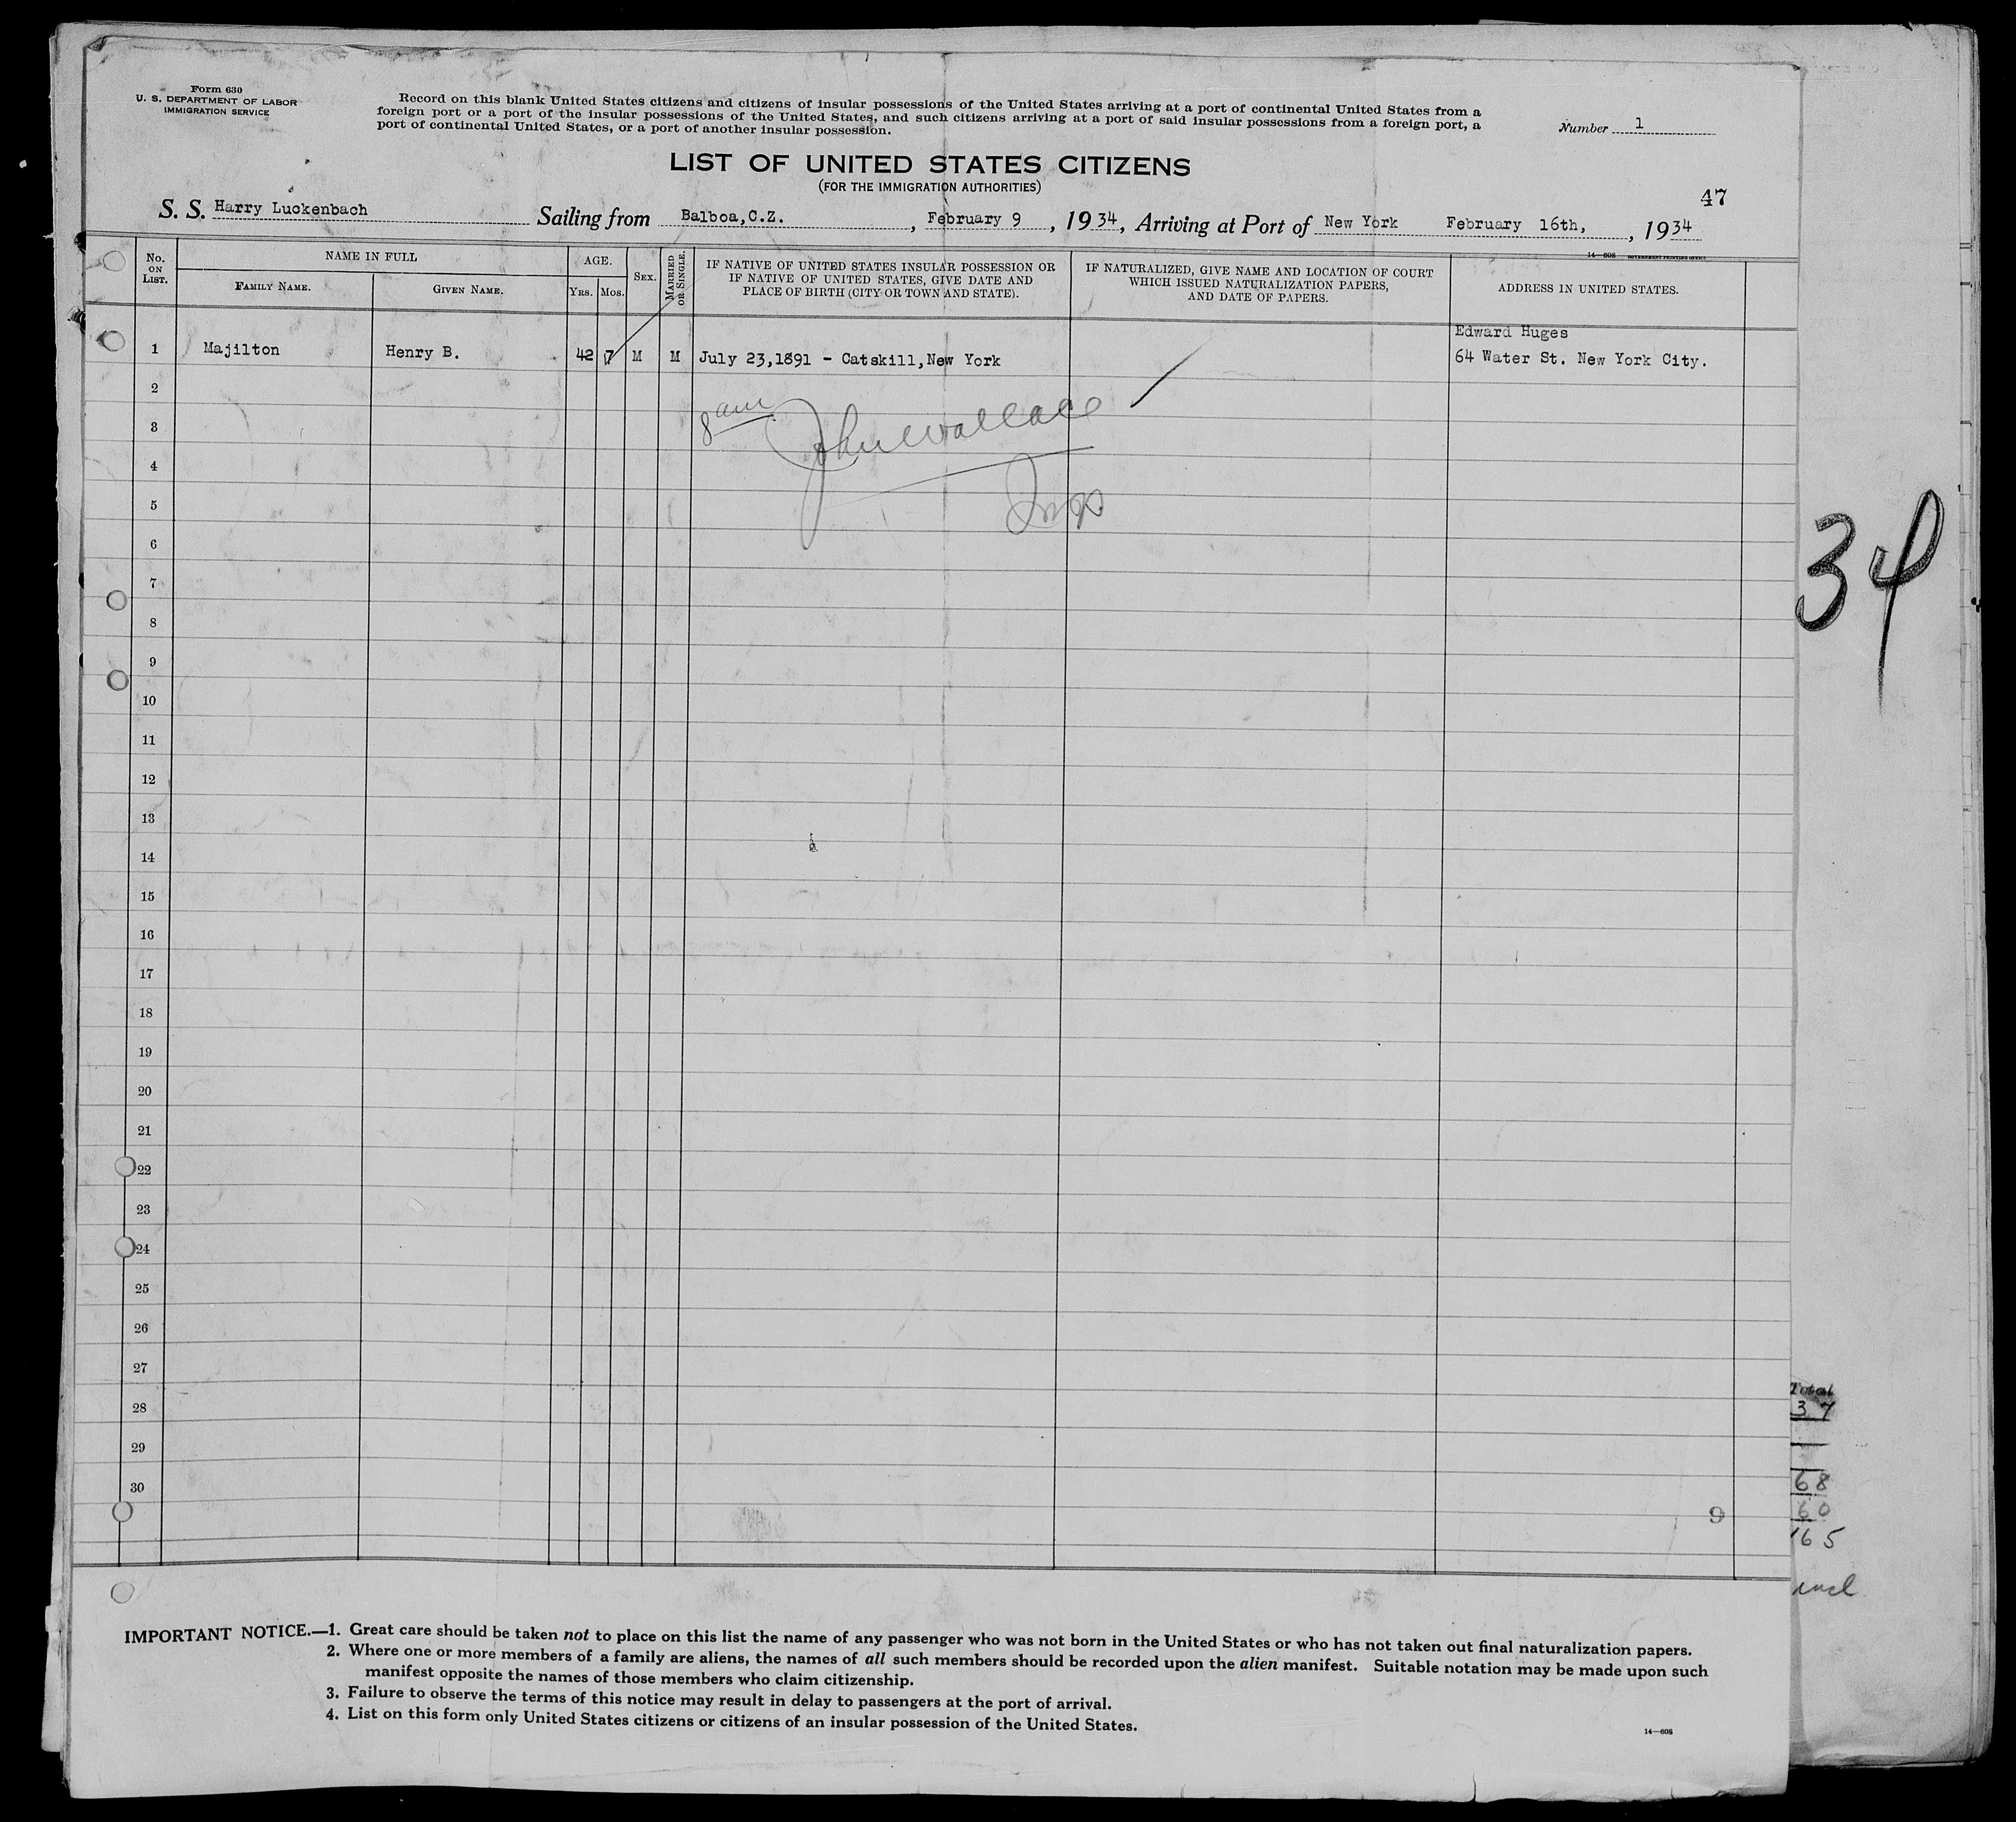 Form 630
U. S. DEPARTMENT OF LABOR
IMMIGRATION SERVICE
Record on this blank United States citizens and citizens of insular possessions of the United States arriving at a port of continental United States from a
foreign port or a port of the insular possessions of the United States, and such citizens arriving at a port of said insular possessions from a foreign port, a
port of continental United States, or a port of another insular possession.
Number 1
LIST OF UNITED STATES CITIZENS
(FOR THE IMMIGRATION AUTHORITIES)
47
S. S. Harry Luckenbach Sailing from Balboa,C.Z. , February 9 , 1934, Arriving at Port of New York February 16th, , 1934
14—608 GOVERNMENT PRINTING OFFICE
No. ON LIST. NAME IN FULL AGE. SEX. MARRIED OR SINGLE.
FAMILY NAME. GIVEN NAME. YRS. MOS.
IF NATIVE OF UNITED STATES INSULAR POSSESSION OR
IF NATIVE OF UNITED STATES, GIVE DATE AND
PLACE OF BIRTH (CITY OR TOWN AND STATE).
IF NATURALIZED, GIVE NAME AND LOCATION OF COURT
WHICH ISSUED NATURALIZATION PAPERS,
AND DATE OF PAPERS.
ADDRESS IN UNITED STATES.
Edward Huges
1 Majilton Henry B. 42 7 M M July 23,1891 - Catskill,New York 64 Water St. New York City.
2
8 am John Wallace
3
4
Insp
5
6
34
7
8
9
10
11
12
13
14
15
16
17
18
19
20
21
22
23
24
25
26
27
Total
28
37
29
30
68
9
60
165
incl
IMPORTANT NOTICE.—1. Great care should be taken not to place on this list the name of any passenger who was not born in the United States or who has not taken out final naturalization papers.
2. Where one or more members of a family are aliens, the names of all such members should be recorded upon the alien manifest. Suitable notation may be made upon such
manifest opposite the names of those members who claim citizenship.
3. Failure to observe the terms of this notice may result in delay to passengers at the port of arrival.
4. List on this form only United States citizens or citizens of an insular possession of the United States.
14—608